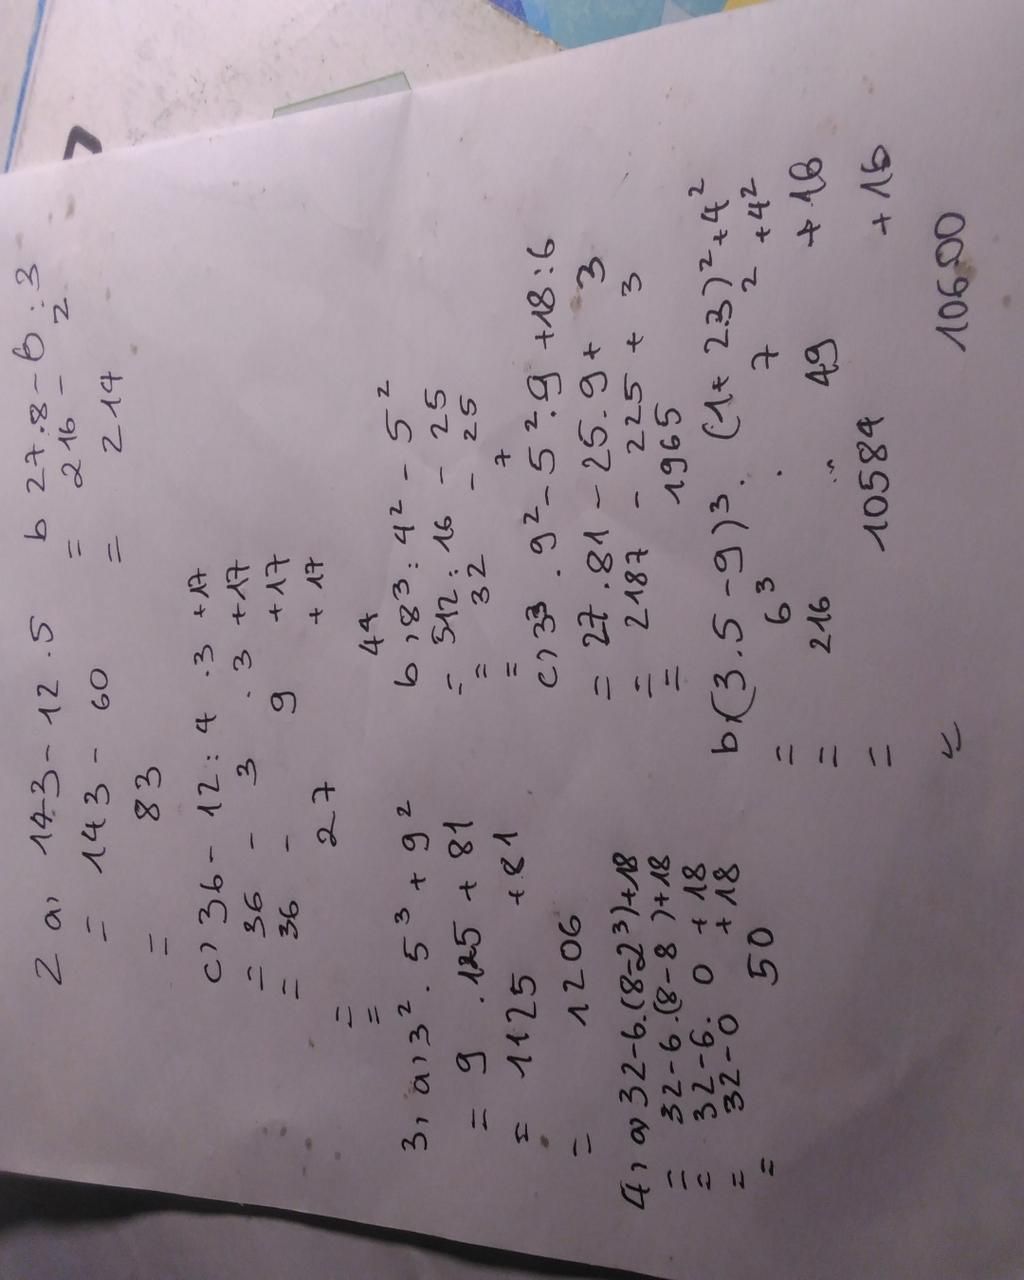 2 a, 143 - 12 . 5
= 143 - 60
= 83
b 27.8 - 6 : 3
= 216 - 2
= 214
c, 36 - 12 : 4 . 3 + 17
= 36 - 3 . 3 + 17
= 36 - 9 + 17
= 27 + 17
= 44
3, a, 3² . 5³ + 9²
= 9 . 125 + 81
= 1125 + 81
= 1206
b, 8³ : 4² - 5²
= 512 : 16 - 25
= 32 - 25
= 7
c, 3³ . 9² - 5² . 9 + 18 : 6
= 27 . 81 - 25 . 9 + 3
= 2187 - 225 + 3
= 1965
4, a, 32 - 6.(8-2³)+18
= 32 - 6 .(8 - 8 )+18
= 32 - 6 . 0 + 18
= 32 - 0 + 18
= 50
b, (3.5 - 9)³ . (1 + 23)² + 4²
= 6³ . 7² + 4²
= 216 . 49 + 16
= 10584 + 16
= 10600